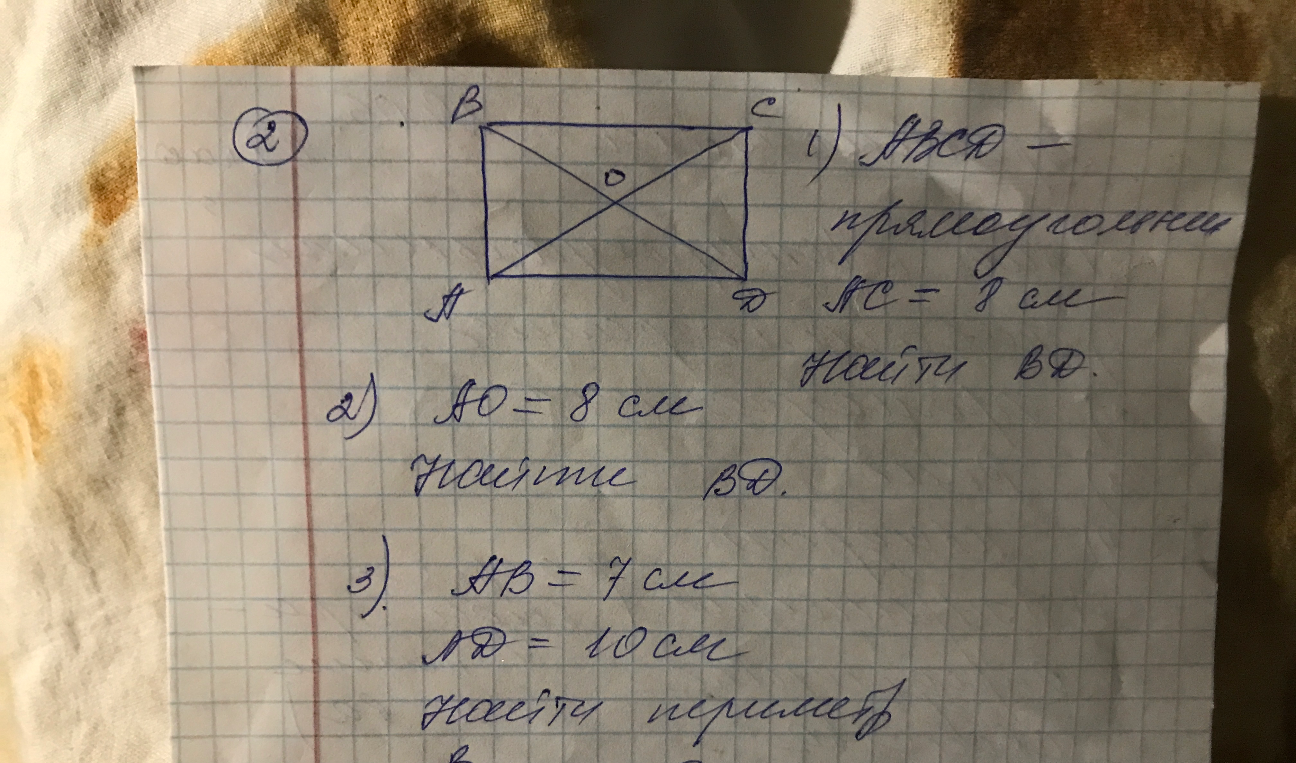 2
B C
O
A D
1) ABCD —
прямоугольник
AC = 8 см
Найти BD.
2) AO = 8 см
Найти BD.
3) AB = 7 см
AD = 10 см
Найти периметр